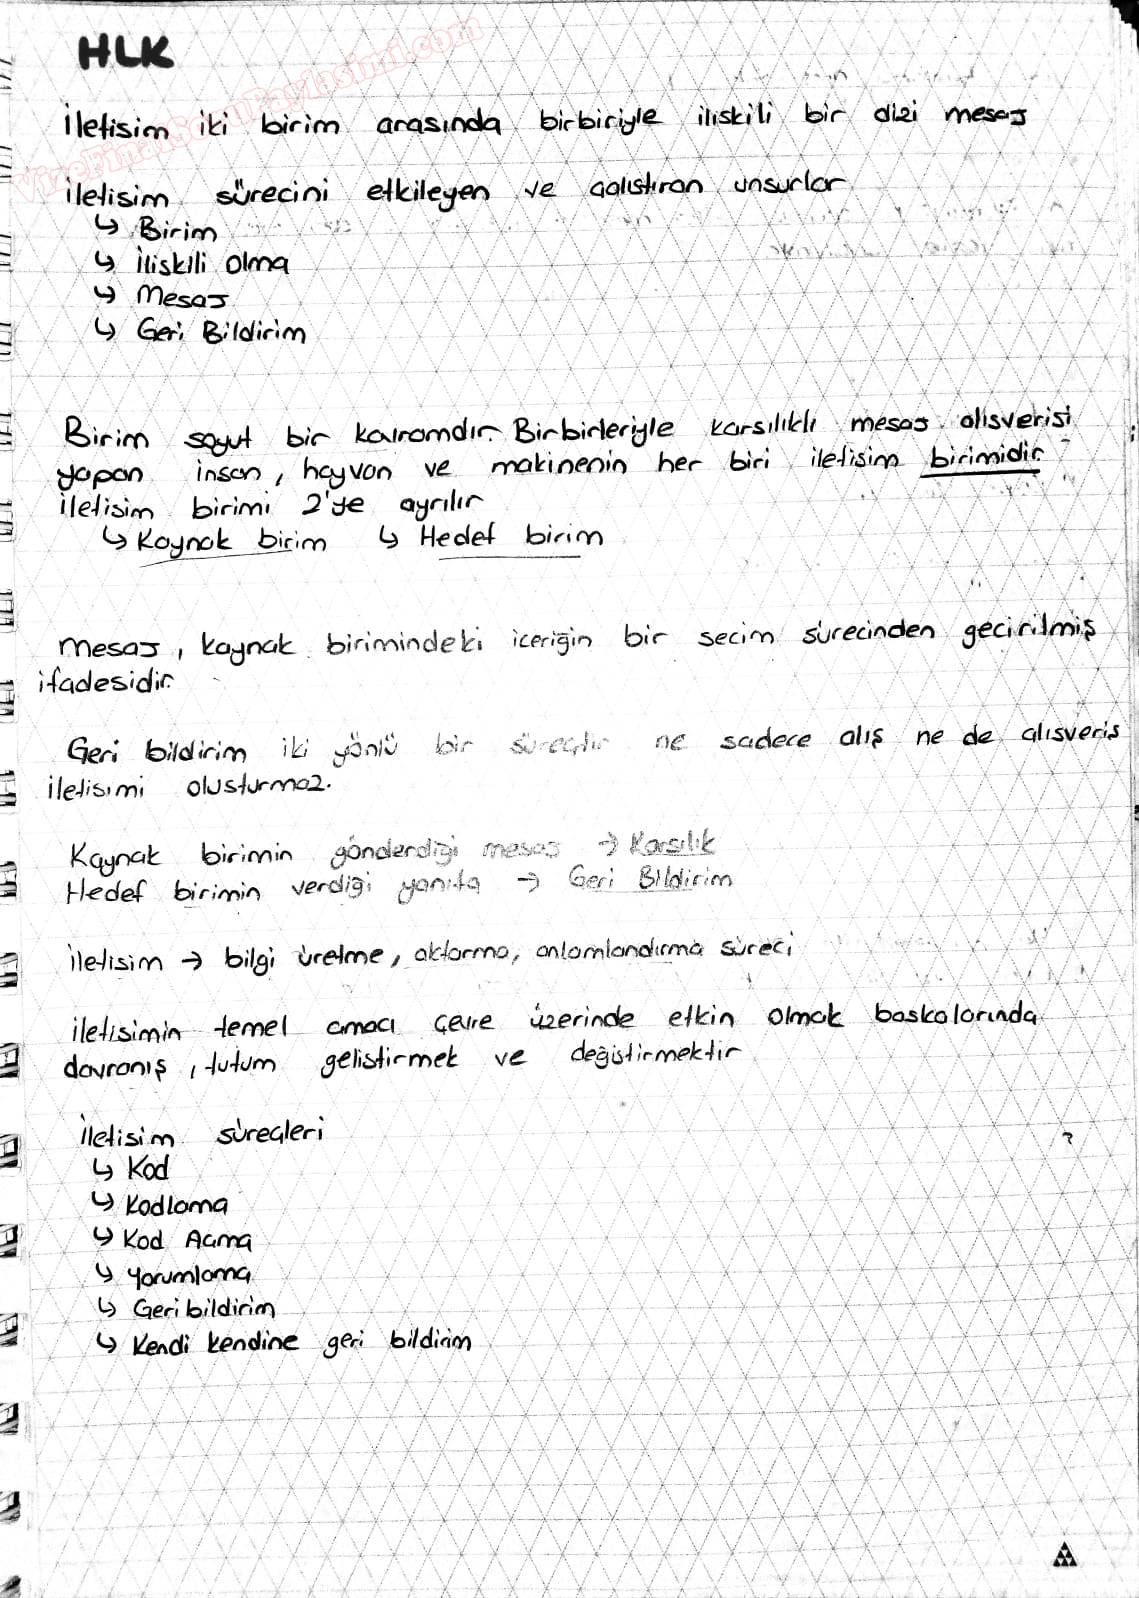 HLK
VizeFinalSoruPaylasimi.com
İletisim iki birim arasında birbiriyle iliskili bir dizi mesaj
İletisim sürecini etkileyen ve çalıstıran unsurlar
↳ Birim
↳ İliskili olma
↳ Mesaj
↳ Geri Bildirim
Birim soyut bir kavramdır. Birbirleriyle karsılıklı mesaj alısverisi
yapan insan, hayvan ve makinenin her biri iletisim birimidir.
İletisim birimi 2'ye ayrılır
↳ Kaynak birim ↳ Hedef birim
Mesaj, kaynak birimindeki iceriğin bir secim sürecinden gecirilmiş
ifadesidir.
Geri bildirim iki yönlü bir süreçtir ne sadece alış ne de alısveris
iletisimi olusturmaz.
Kaynak birimin gönderdiği mesaj → Karsılık
Hedef birimin verdiği yanıta → Geri Bildirim
İletisim → bilgi üretme, aktarma, anlamlandırma süreci
İletisimin temel amacı çevre üzerinde etkin olmak baskalarında
davranış, tutum gelistirmek ve değistirmektir
İletisim süreçleri
↳ Kod
↳ Kodlama
↳ Kod Acma
↳ Yorumlama
↳ Geri bildirim
↳ Kendi kendine geri bildirim